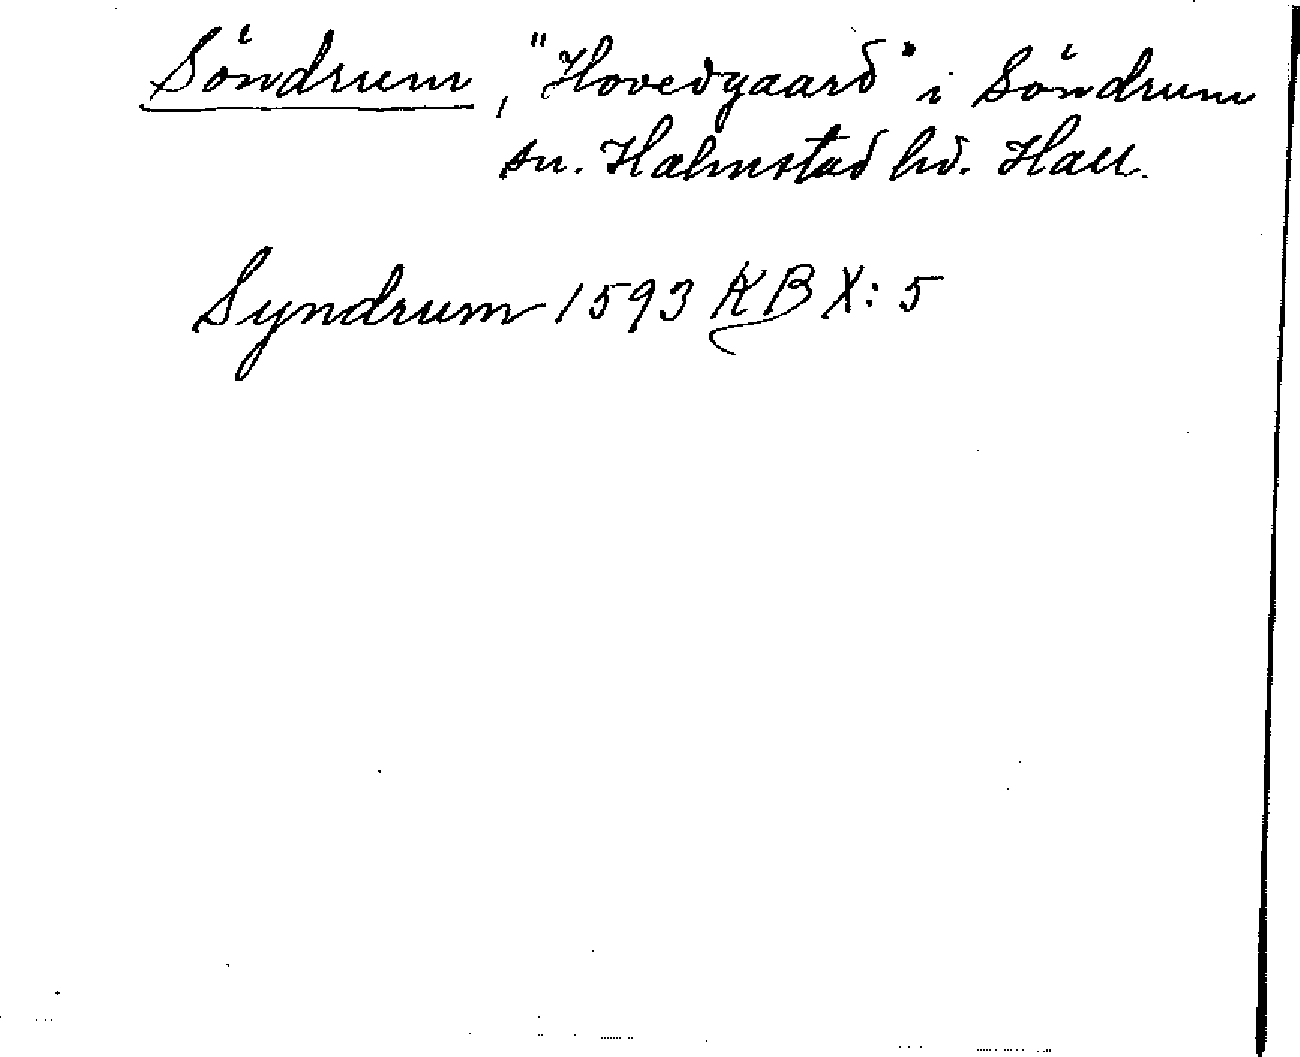 Söndrum, "Hovedgaard" i Söndrum
sn. Halmstad hd. Hall.
Syndrum 1593 KB X: 5